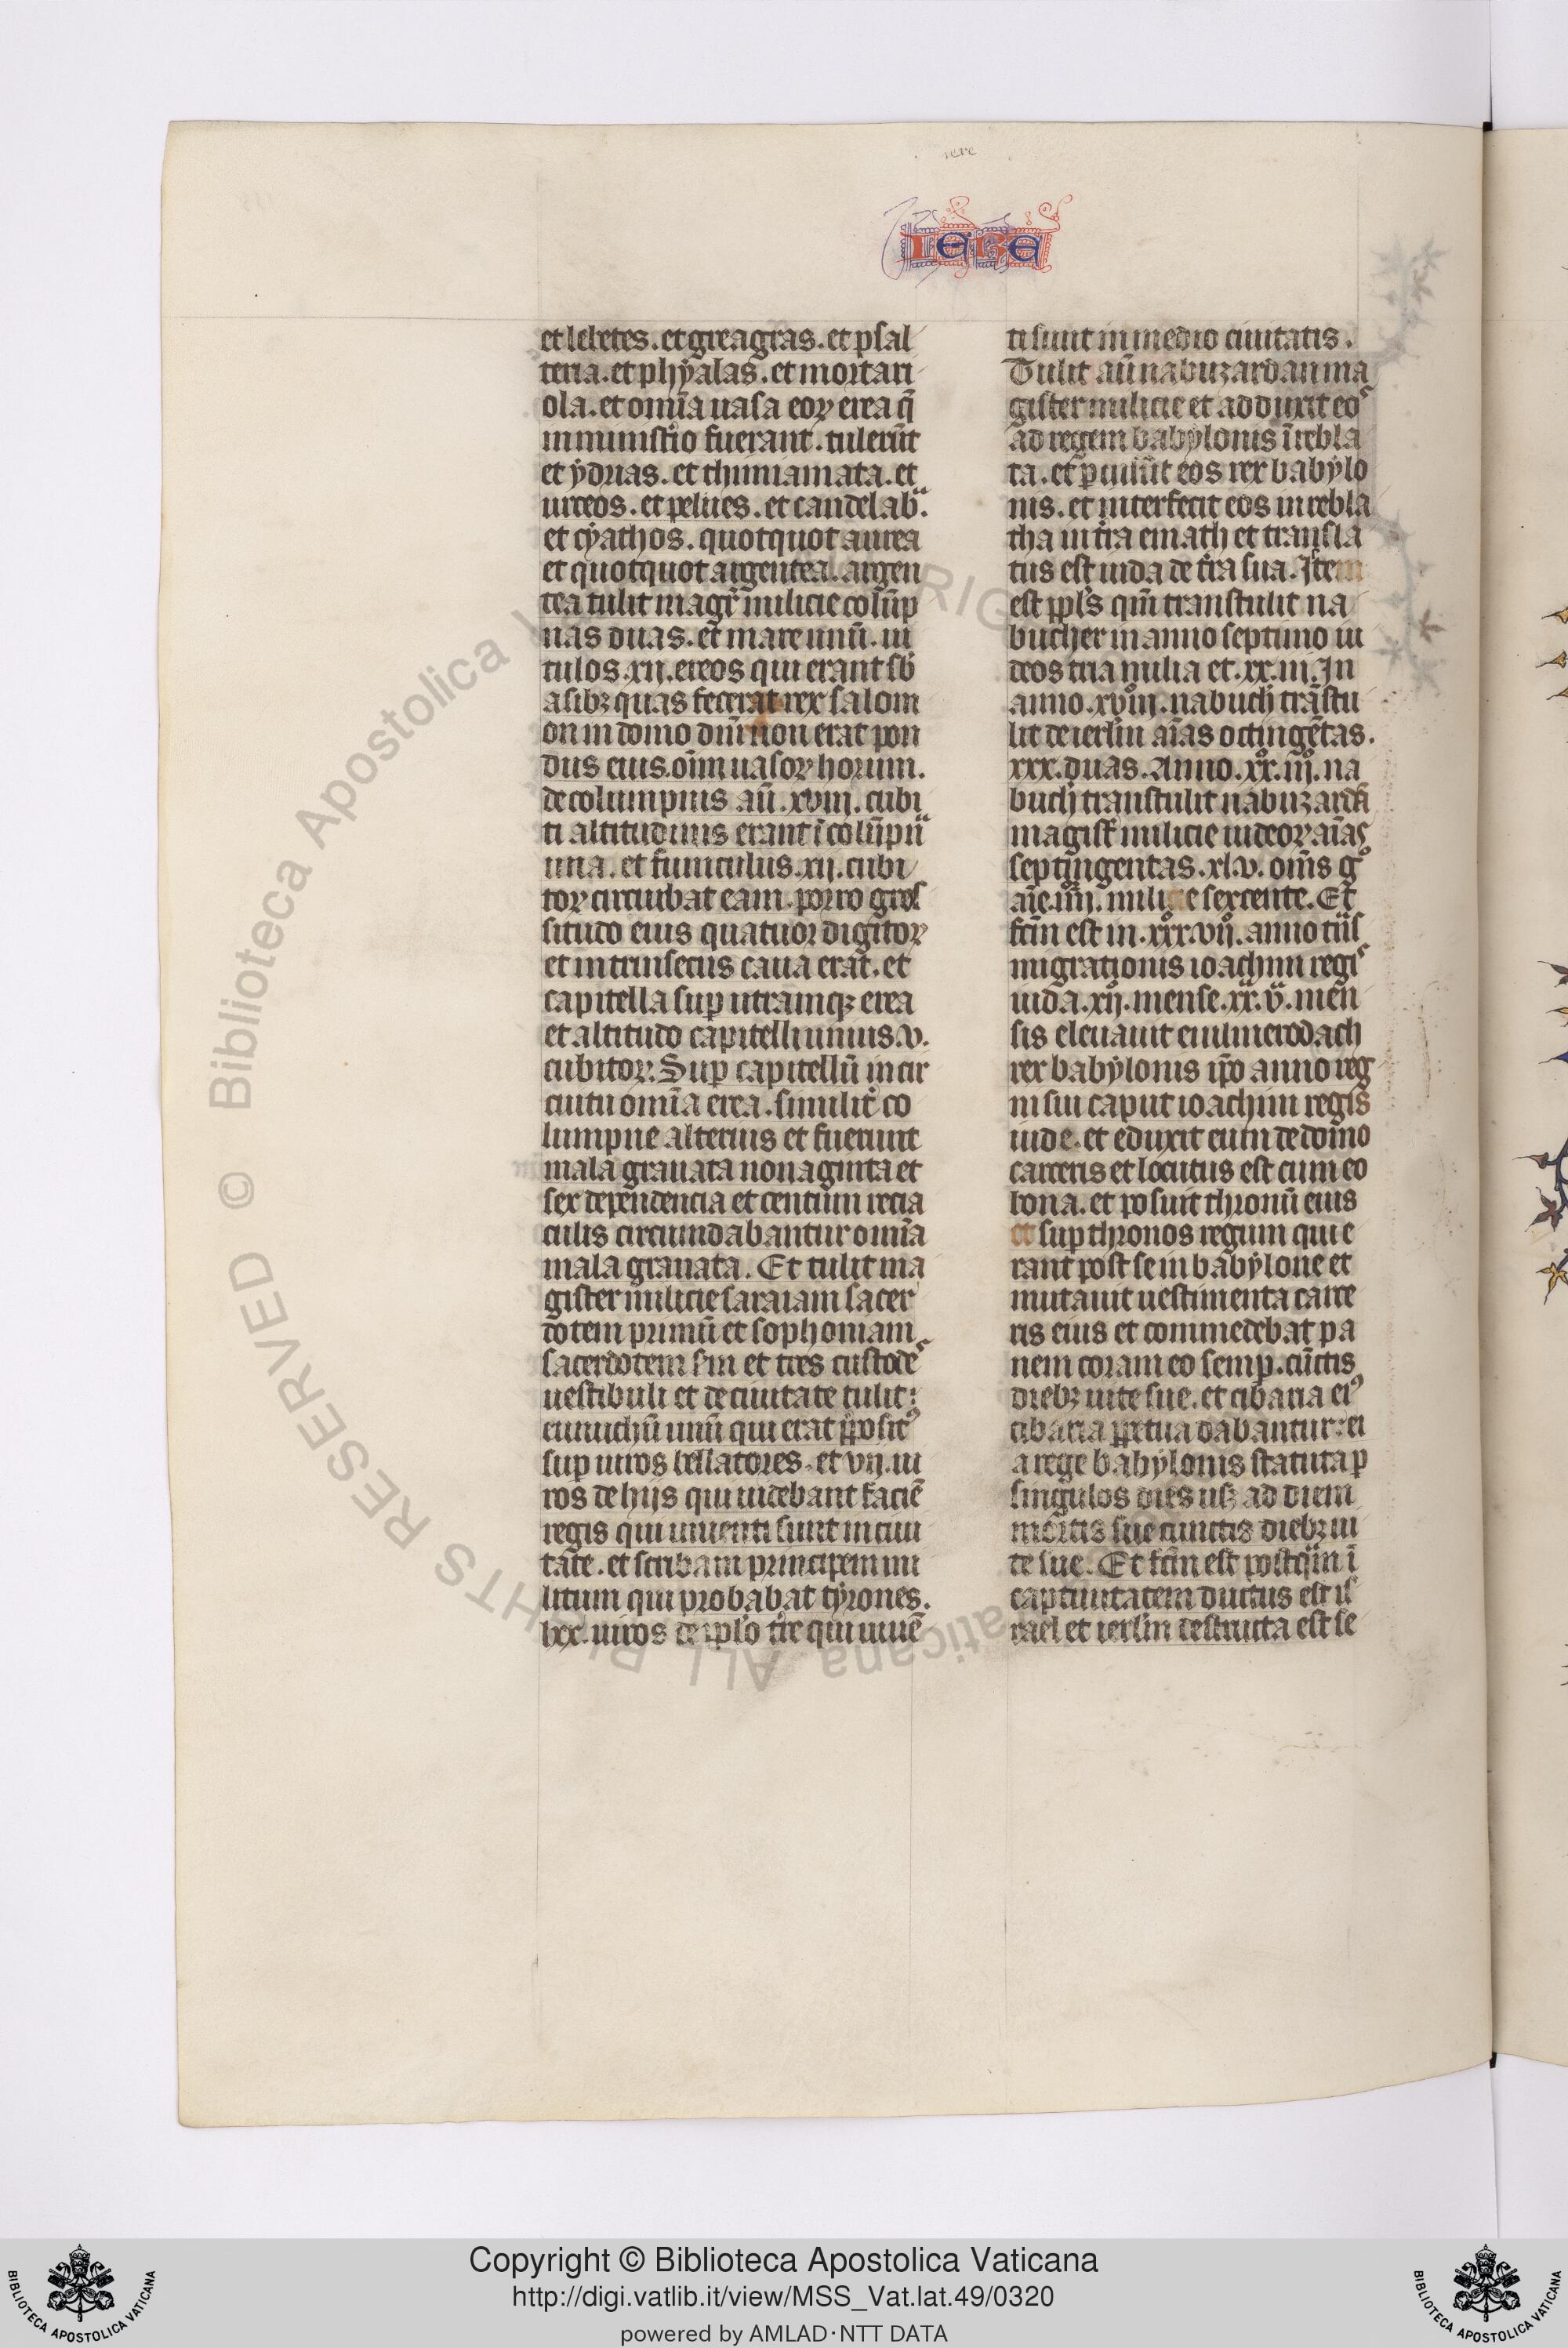 iere
IERE
et lebetes . et greagras . et psal
teria . et phyalas . et mortari
ola . et omīa uasa eoꝝ erea q̄
in ministio fuerant . tulerūt
et ydrias . et thimiamata . et
urceos . et pelues . et candelabᵃ.
et cyathos . quotquot aurea
et quotquot argentea . argen
tea tulit magr̄ milicie colūp
nas duas . et mare unū . ui
tulos .xij. ereos qui erant sb̄
asibꝫ quas fecerat rex salom
on in domo dn̄i non erat pon
dus eius . oīm uasoꝝ horum .
de columpnis aū . xviij . cubi
ti altitudinis erant ī colūpnᵃ
una . et funiculus .xij. cubi
toꝝ circuibat eam . porro gros
situdo eius quatuor digitoꝝ
et intrinsecus caua erat . et
capitella sup utramqꝫ erea
et altitudo capitelli unius .v.
cubitoꝝ. Sup capitellū in cir
cuitu omīa erea . similit̄ co
lumpne alterius et fuerunt
mala granata nonaginta et
sex dependencia et centum recia
culis circumdabantur omīa
mala granata . Et tulit ma
gister milicie saraiam sacer
dotem primū et sophoniam
sacerdotem sm̄ et tres custodes
uestibuli et de ciuitate tulit :
eunuchū unū qui erat p̄posit᾽
sup uiros bellatores . et vij . ui
ros de hijs qui uidebant faciē
regis qui inuenti sunt in ciui
tate . et scribam principem mi
litum qui probabat tyrones .
lxx . uiros de ipl̄o tr̄e qui inuē
ti sunt in medio ciuitatis .
Tulit aū nabuzardan ma
gister milicie et adduxit eos
ad regem babylonis ī rebla
ta . et p̄cussit eos rex babylo
nis . et interfecit eos in rebla
tha in tr̄a emath et transla
tus est iuda de tr̄a sua . Item
est ppl̄s qm̄ transtulit na
bucher in anno septimo iu
deos tria milia et . xx . iij . In
anno . xviijᵒ . nabuch̄ trāstu
lit de ierl̄m aīas octingētas .
xxx . duas . Anno . xxᵒ . iijᵒ . na
buch̄ transtulit nabuzardā
magist̄ milicie iudeoꝝ aīas
septingentas . xl . v . om̄s gᵒ
aīe . iiijᵒʳ . milie sexcente . Et
fc̄m est in . xxxᵒ. vijᵒ . anno tn̄s
migrationis ioachim regis
iuda . xijᵒ . mense . xxᵃ. vᵃ . men
sis eleuauit euilmerodach
rex babylonis ip̄o anno reg
ni sui caput ioachim regis
iude . et eduxit eum de domo
carceris et locutus est cum eo
bona . et posuit thronū eius
et sup thronos regum qui e
rant post se in babylone et
mutauit uestimenta carce
ris eius et commedebat pa
nem coram eo semp . cūctis
diebꝫ uite sue . et cibaria ei᾽
cibaria ppetua dabantur : ei
a rege babylonis statuta p
singulos dies usqꝫ ad diem
mortis sue cunctis diebꝫ ui
te sue . Et fc̄m est postqᵃm ī
captiuitatem ductus est is
rael et ierl̄m destructa est se
© Biblioteca Apostolica Vaticana ALL RIGHTS RESERVED
Copyright © Biblioteca Apostolica Vaticana
http://digi.vatlib.it/view/MSS_Vat.lat.49/0320
powered by AMLAD·NTT DATA
BIBLIOTECA APOSTOLICA VATICANA
BIBLIOTECA APOSTOLICA VATICANA